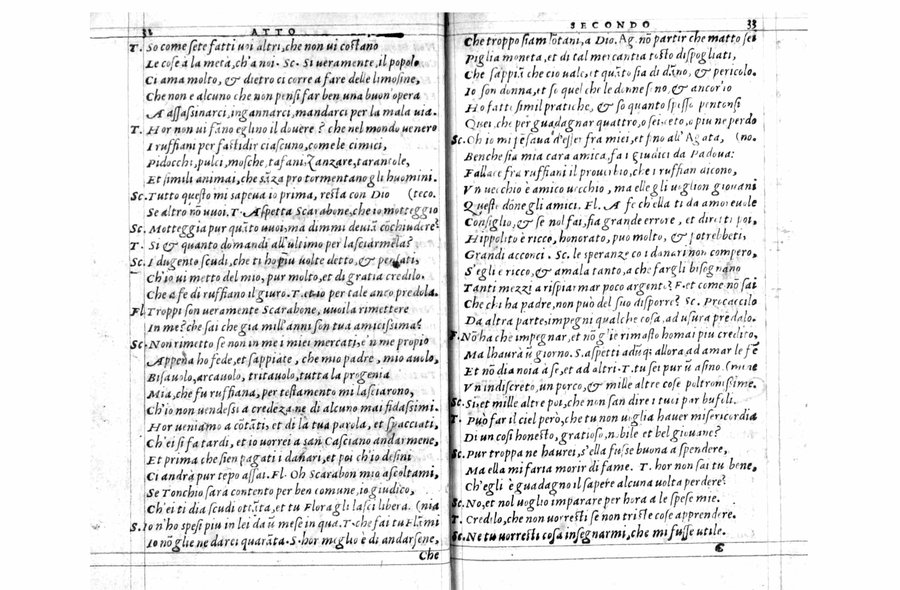 32 ATTO
T. So come sete fatti voi altri, che non vi costano
Le cose à la metà, ch'a noi. Sc. Si veramente, il popolo
Ci ama molto, & dietro ci corre a fare delle limosine,
Che non e alcuno che non pensi far ben una buon'opera
A assassinarci, ingannarci, mandarci per la mala via.
T. Hor non vi fano eglino il dovere? che nel mondo venero
I ruffiani per fastidir ciascuno, come le cimici,
Pidocchi, pulci, mosche, tafani, Zanzare, tarantole,
Et simili animai, che sãza pro tormentano gli huomini.
Sc. Tutto questo mi sapeva io prima, resta con Dio (teco.
Se altro nõ vuoi. T. Aspetta Scarabone, che io motteggio
Sc. Motteggia pur quãto vuoi, ma dimmi deviã cõchiudere?
T. Si & quanto domandi all'ultimo per lasciarmela?
Sc. I dugento scudi, che ti ho piu volte detto, & pensati,
Ch'io vi metto del mio, pur molto, et di gratia credilo,
Che a fe di ruffiano il giuro. T. et io per tale anco predola.
Fl. Troppi son veramente Scarabone, vuoila rimettere
In me? che sai che gia mill'anni son tua amicissima?
Sc. Non rimetto se non in me i miei mercati, e'n me proprio
Appena ho fede, et sappiate, che mio padre, mio avolo,
Bisavolo, arcavolo, tritavolo, tutta la progenia
Mia, che fu ruffiana, per testamento mi lasciarono,
Ch'io non vendessi a credeza ne di alcuno mai fidassimi.
Hor veniamo a cõtãti, et di la tua parola, et spacciati,
Ch'ei si fa tardi, et io vorrei a san Casciano andarmene,
Et prima che sien pagati i danari, et poi ch'io desini
Ci andrà pur tẽpo assai. Fl. Oh Scarabon mio ascoltami,
Se Tonchio sarà contento per ben comune, io giudico,
Ch'ei ti dia scudi ottãta, et tu Flora gli lasci libera. (nia
S. Io n'ho spesi piu in lei da ũ mese in qua. T. che fai tu Flãmi
Io nõ glie ne darci quarãta. S. hor meglio è di andarsene,
Che
SECONDO 33
Che troppo siam lõtani, a Dio. Ag. nõ partir che matto sei
Piglia moneta, et di tal mercantia tosto dispogliati,
Che sappiã che cio vale, et quãto sia di dãno, & pericolo.
Io son donna, et so quel che le donne sono, & ancor'io
Ho fatte simil pratiche, & so quanto spesso pentonsi
Quei, che per guadagnar quattro, o sei, ceto, o piu ne perdo
Sc. Oh io mi pẽsava d'esser fra miei, et sino all' Agata, (no.
Benche sia mia cara amica, fa i giudici da Padova:
Fallare fra ruffiani il proverbio, che i ruffian dicono,
Vn vecchio è amico vecchio, ma elle gli voglion giovani
Queste dõne gli amici. Fl. A fe ch'ella ti da amorevole
Consiglio, & se nol fai, fia grande errore, et direi poi,
Hippolito è ricco, honorato, puo molto, & potrebbeti,
Grandi acconci. Sc. le speranze co i danari non compero,
S'egli e ricco, & amala tanto, a che fargli bisognano
Tanti mezzi a risparmiar poco argento? F. et come nõ sai
Che chi ha padre, non può del suo disporre? Sc. Procaccilo
Da altra parte, impegni qualche cosa, ad usura prẽdalo.
F. Nõ ha che impegnar, et nõ g'ie rimasto homai piu credito,
Ma l'haurà ũ giorno. S. aspetti adũq; allora, ad amar le fẽ
Et nõ dia noia a se, et ad altri. T. tu sei pur ũ asino (mine
Vn indiscreto, un porco, & mille altre cose poltronissime.
Sc. Si, et mille altre poi, che non san dire i tuoi par bufoli.
T. Può far il ciel però, che tu non voglia haver misericordia
Di un cosi honesto, gratioso, nobile et bel giovane?
Sc. Pur troppa ne haurei, s'ella fusse buona a spendere,
Ma ella mi faria morir di fame. T. hor non sai tu bene,
Ch'egli è guadagno il sapere alcuna volta perdere?
Sc. No, et nol voglio imparare per hora a le spese mie.
T. Credilo, che non vorresti se non triste cose apprendere.
Sc. Ne tu vorresti cosa insegnarmi, che mi fusse utile.
C